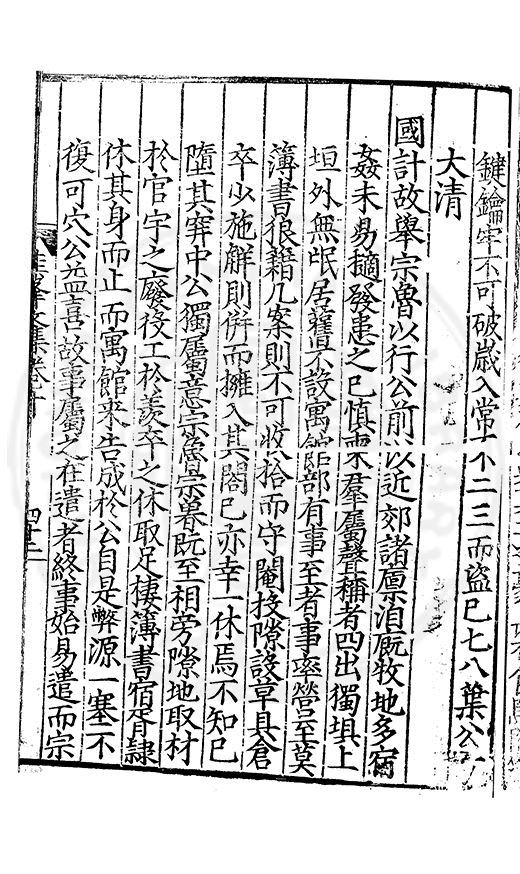 鍵鑰牢不可破歲入常十不二三而盜已七八梁公
大清
國計故舉宗魯以行公前以近郊諸廪洎厩牧地多宿
姦未易擿發患之已慎罙羣屬聲稱者四出獨埧上
垣外無氓居舊不設寓館部有事至者事率營營至莫
簿書狼藉几案則不可收拾而守閽投隙設草具倉
卒少施觧則併而擁入其閤已亦幸一休焉不知已
墮其穽中公獨屬意宗魯宗魯既至相旁隙地取材
於官宇之廢役工於羡卒之休取足棲簿書宿胥隷
休其身而止而寓館来告成於公自是弊源一塞不
復可穴公益喜故事屬之在遣者終事始易遣而宗
四十二